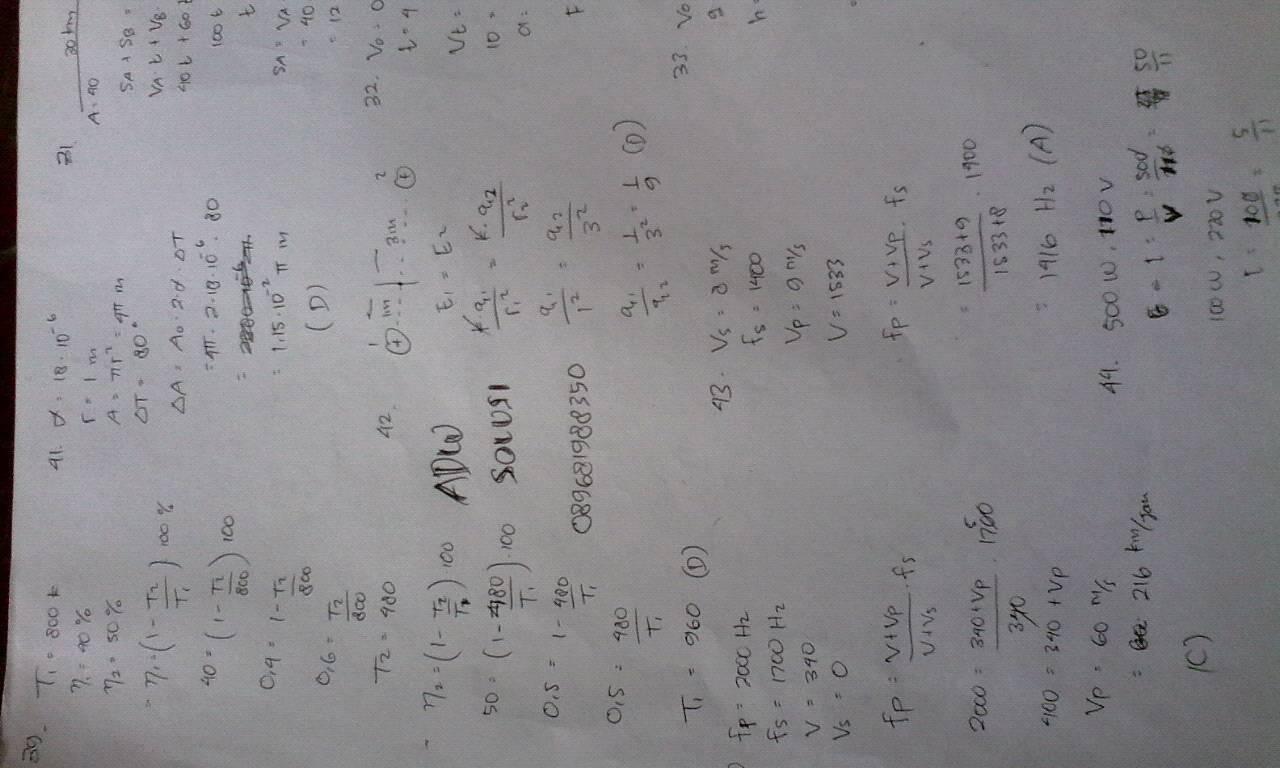 39.
T₁ = 800 K
η₁ = 40 %
η₂ = 50 %
- η₁ = (1 - T₂/T₁) 100 %
40 = (1 - T₂/800) 100
0,4 = 1 - T₂/800
0,6 = T₂/800
T₂ = 480
- η₂ = (1 - T₂/T₁) 100
50 = (1 - 480/T₁) . 100
0,5 = 1 - 480/T₁
0,5 = 480/T₁
T₁ = 960 (D)
) fp = 2000 Hz
fs = 1700 Hz
V = 340
Vs = 0
fp = V+Vp/V+Vs . fs
2000 = 340+Vp/340 . 1700
400 = 340 + Vp
Vp = 60 m/s
= 216 km/jam
(C)
41. α = 18 . 10⁻⁶
r = 1 m
A = πr² = 4π m
ΔT = 80°
ΔA = A₀ . 2α . ΔT
= 4π . 2 . 18 . 10⁻⁶ . 80
= 1,15 . 10⁻² π m
(D)
ADW
SOLUSI
089681988350
42.
1 2
(+) ..1m..|..3m.... (+)
E₁ = E₂
K q₁/r₁² = K . q₂/r₂²
q₁/1² = q₂/3²
q₁/q₂ = 1/3² = 1/9 (D)
43. Vs = 8 m/s
fs = 1400
Vp = 9 m/s
V = 1533
fp = V+Vp/V+Vs . fs
= 1533+9/1533+8 . 1400
= 1416 Hz (A)
44. 500 W, 110 V
I = P/V = 500/110 = 50/11
100 W, 220 V
I = 100 = 5/11
31
30 km
A = 40
SA + SB =
VA . t + VB.
40t + 60t
100t
t
SA = VA
= 40
= 12
32. V₀ = 0
t = 4
Vt =
10 =
a =
F
33. V₀
g
h =